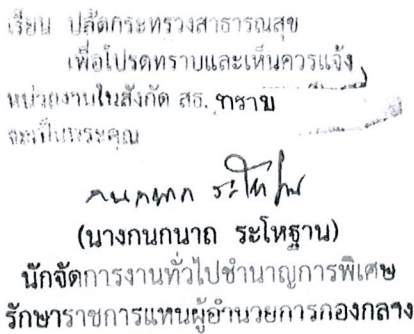 เรียน ปลัดกระทรวงสาธารณสุข
เพื่อโปรดทราบและเห็นควรแจ้ง
หน่วยงานในสังกัด สธ. ทราบ
จะเป็นพระคุณ
(นางกนกนาถ ระโหฐาน)
นักจัดการงานทั่วไปชำนาญการพิเศษ
รักษาราชการแทนผู้อำนวยการกองกลาง